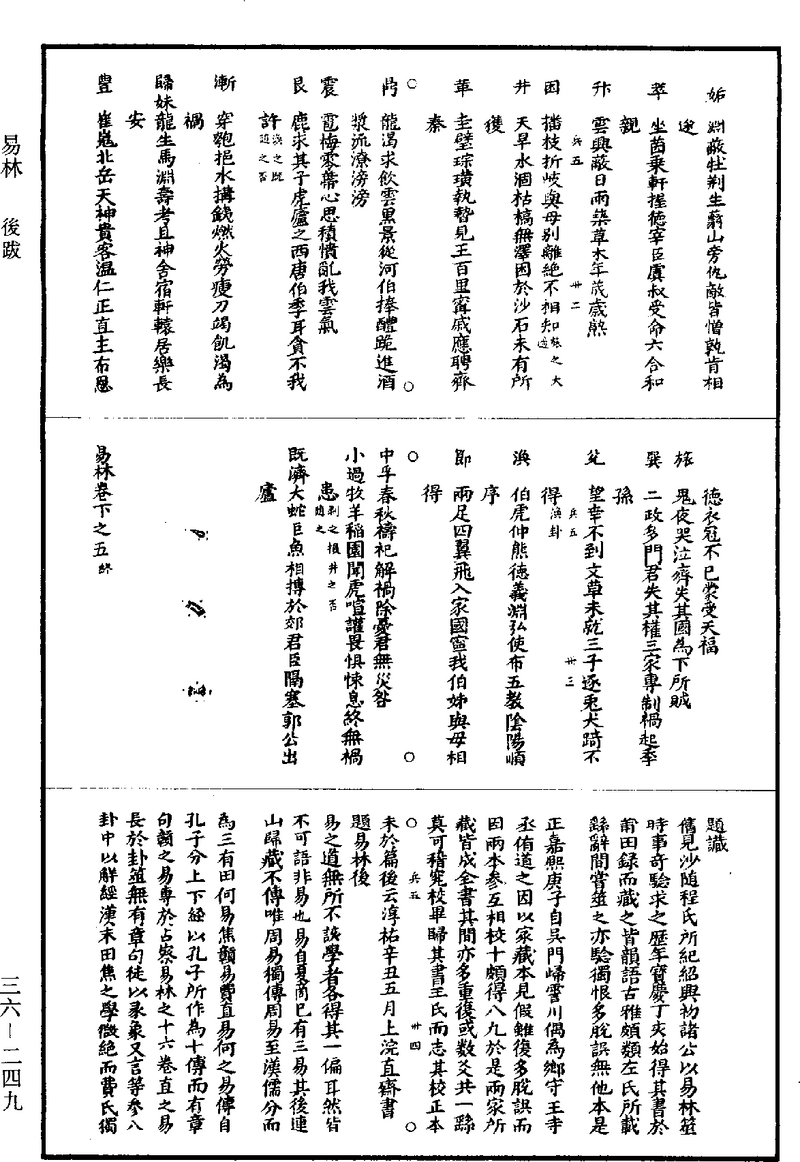 易林 後跋
三六-二四九
姤 淵蔽牡荊生蘙山旁仇敵皆憎孰肯相
迯
萃 坐茵乗軒握德宰臣虞叔受命六合和
親
升 雲興蔽日雨集草木年茂歲熟
兵五
卅二
困 播枝折岐與母別離絶不相知 旅之大
井 天旱水涸枯槁無澤困於沙石未有所
獲
革 圭璧琮璜執贄見王百里甯戚應聘齊
秦
鼎 龍渴求飲雲黑景從河伯捧醴跪進酒
漿流潦滂滂
震 雹梅零蔕心思積憒亂我雲氣
艮 鹿求其子虎廬之西唐伯季耳貪不我
許
漸 穿匏挹水搆錢燃火勞疲力竭飢渴為
禍
歸妹 龍生馬淵壽考且神舍宿軒轅居樂長
安
豊 崔嵬北岳天神貴客溫仁正直主布恩
德衣冠不已蒙受天福
旅 鬼夜哭泣齊失其國為下所賊
巽 二政多門君失其權三家專制禍起季
孫
兌 望幸不到文章未就三子逐兎犬踦不
得 渙卦
兵五
卅三
渙 伯虎仲熊德義淵弘使布五教陰陽順
序
節 兩足四翼飛入家國寧我伯姊與母相
得
中孚 春秋禱祀解禍除憂君無災咎
小過 牧羊稻園聞虎喧讙畏惧悚息終無禍
患
既濟 大蛇巨魚相搏於郊君臣隔塞郭公出
廬
易林卷下之五 終
題識
舊見沙隨程氏所紀紹興初諸公以易林筮
時事奇驗求之歴年寶慶丁亥始得其書於
莆田録而藏之皆韻語古雅頗類左氏所載
繇辭間嘗筮之亦驗獨恨多脫誤無他本是
正嘉熙庚子自吳門歸霅川偶為鄉守王寺
丞侑道之因以家藏本見假雖復多脫誤而
因兩本參互相校十頗得八九於是兩家所
藏皆成全書其間亦多重復或数爻共一繇
莫可稽究校畢歸其書王氏而志其校正本
末於篇後云淳祐辛丑五月上浣直齋書
兵五
卅四
題易林後
易之道無所不該學者各得其一偏耳然皆
不可語非易也易自夏商巳有三易其後連
山歸藏不傳唯周易獨傳周易至漢儒分而
為三有田何易焦贛易費直易何之易傳自
孔子分上下經以孔子所作為十傳而有章
句贛之易專於占察易林之十六卷直之易
長於卦筮無有章句徒以彖象文言等參八
卦中以解經漢末田焦之學微絶而費氏獨